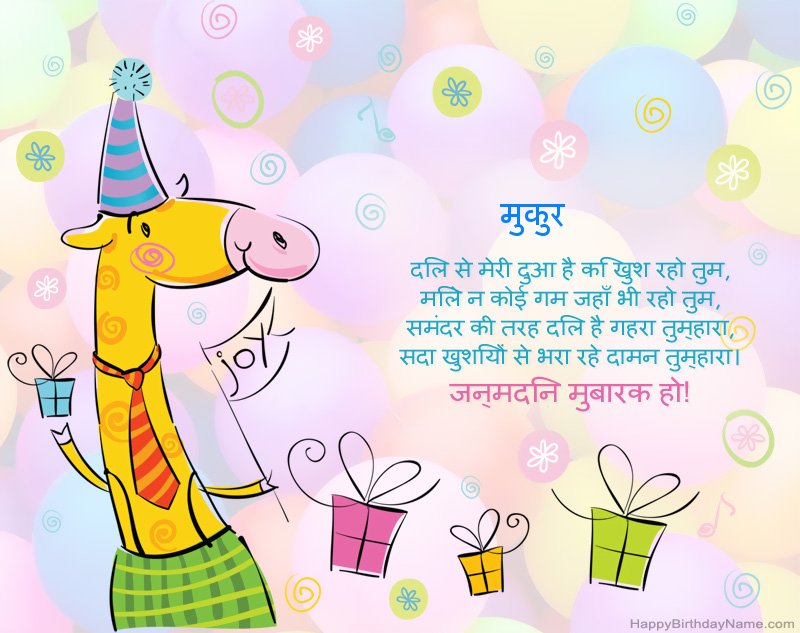 मुकुर
दलि से मेरी दुआ है कि खुश रहो तुम,
मलिे न कोई गम जहाँ भी रहो तुम,
समंदर की तरह दलि है गहरा तुम्हारा,
सदा खुशयिों से भरा रहे दामन तुम्हारा।
जन्मदनि मुबारक हो!
joy
HappyBirthdayName.com